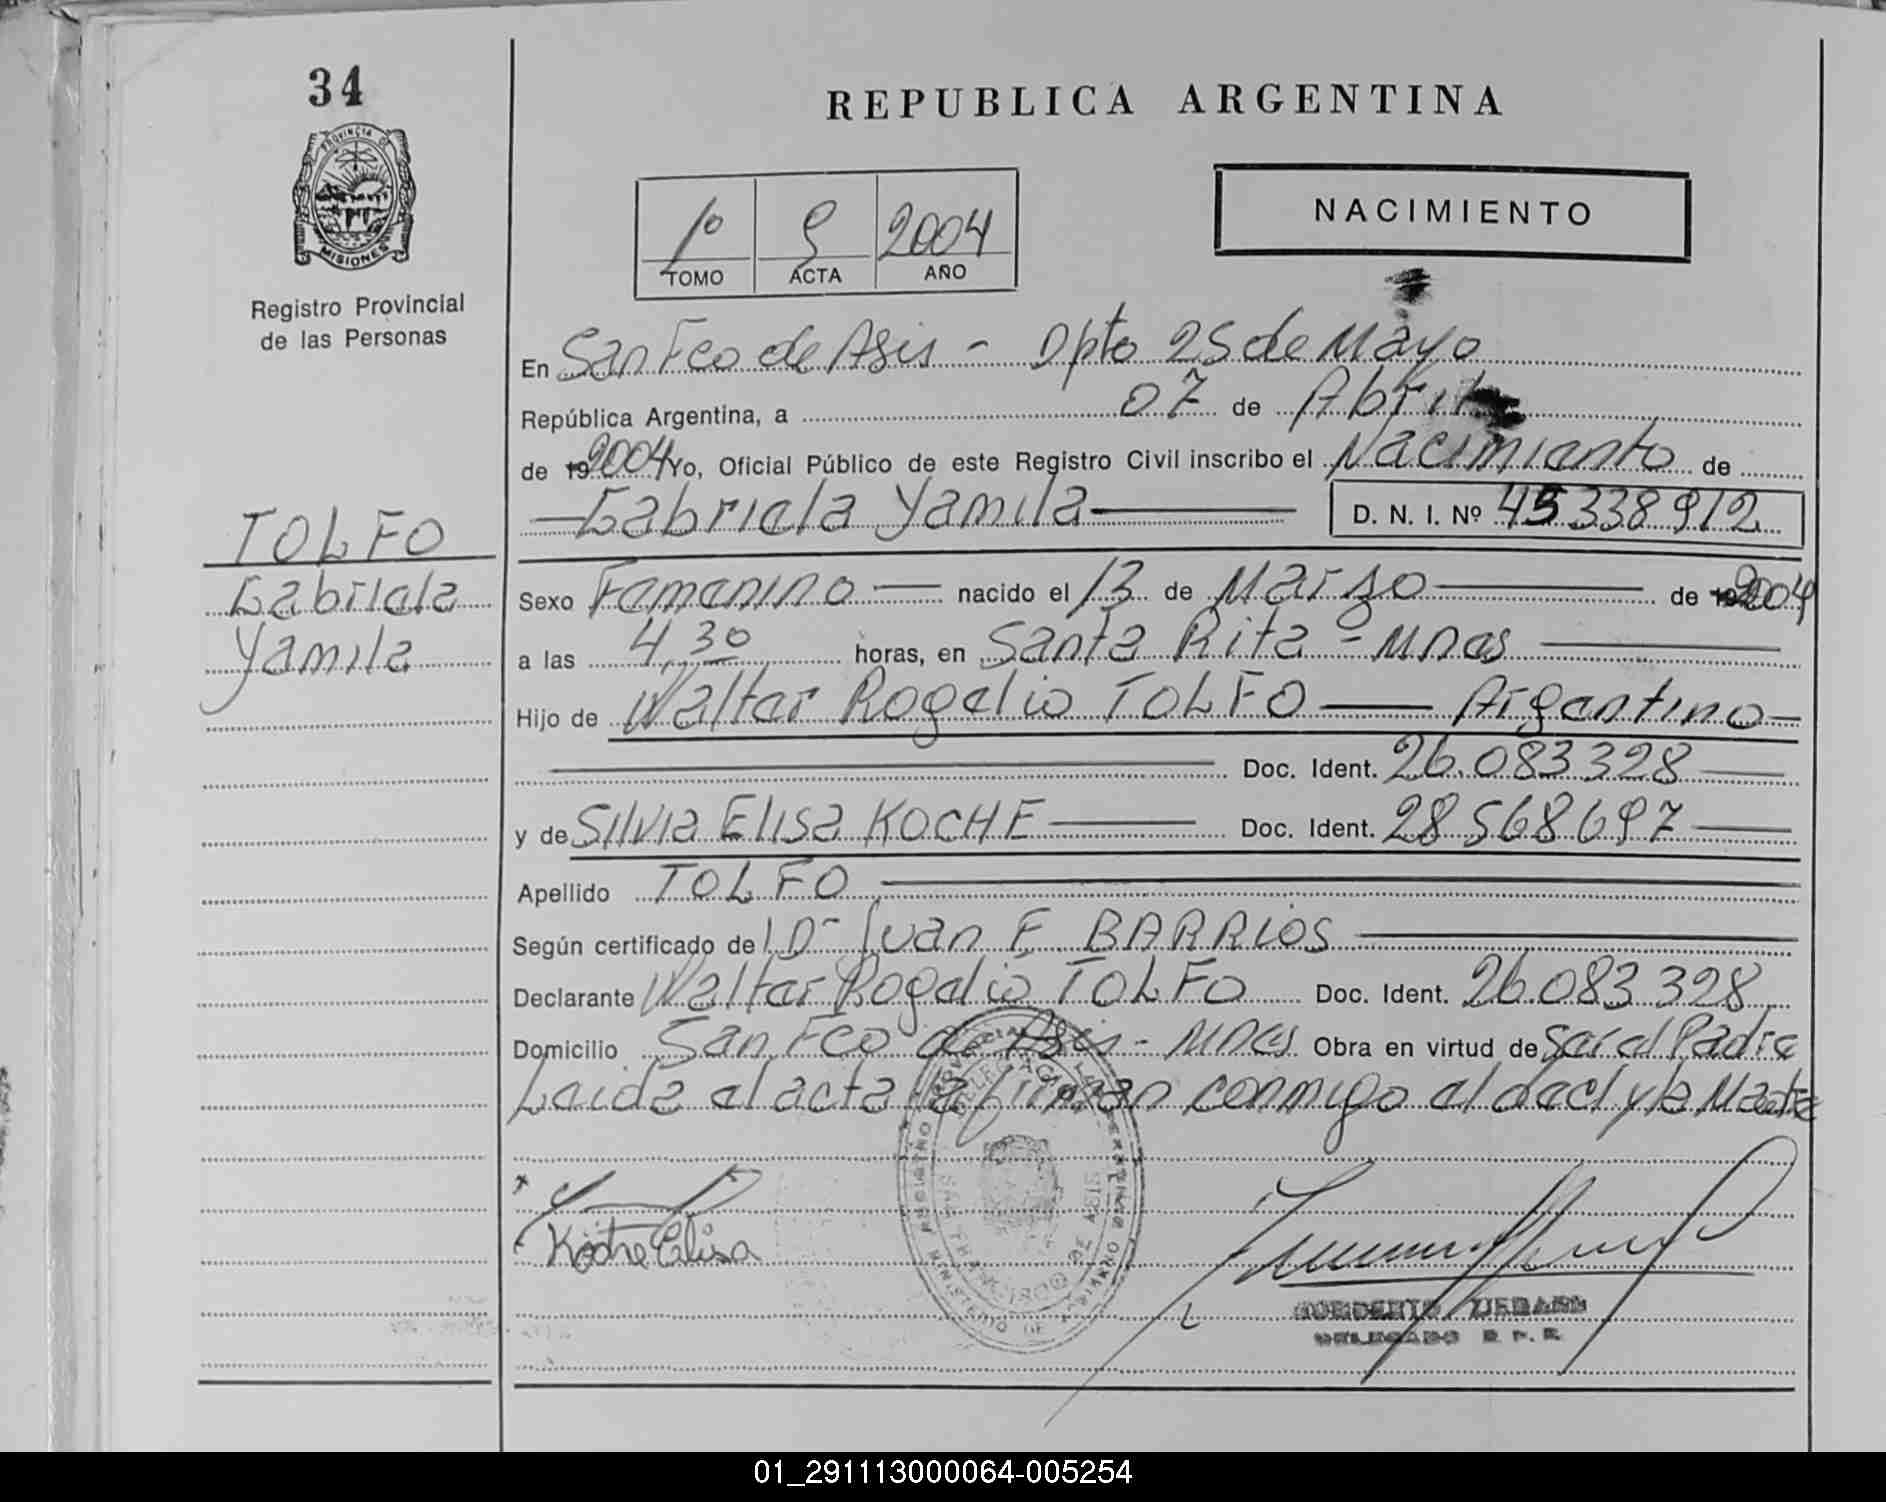 34
PROVINCIA DE
MISIONES
Registro Provincial
de las Personas
REPUBLICA ARGENTINA
1º 9 2004
TOMO ACTA AÑO
NACIMIENTO
En San Fco de Asis - Dpto 25 de Mayo
República Argentina, a 07 de Abril
de 19 2004 Yo, Oficial Público de este Registro Civil inscribo el Nacimiento de
Gabriela Yamila D. N. I. Nº 45338912
TOLFO
Gabriela
Yamila
Sexo Femenino nacido el 13 de Marzo de 2004
a las 4,30 horas, en Santa Rita - Mnes
Hijo de Walter Rogelio TOLFO Argentino
Doc. Ident. 26.083328
y de Silvia Elisa KOCHE Doc. Ident. 28568697
Apellido TOLFO
Según certificado de Dr Juan F. BARRIOS
Declarante Walter Rogelio TOLFO Doc. Ident. 26.083.328
Domicilio San Fco de Asis - Mnes Obra en virtud de Ser el Padre
Leida el acta la firman conmigo el decl y la Madre
Koche Elisa
DELEGADO R. P. P.
01_291113000064-005254